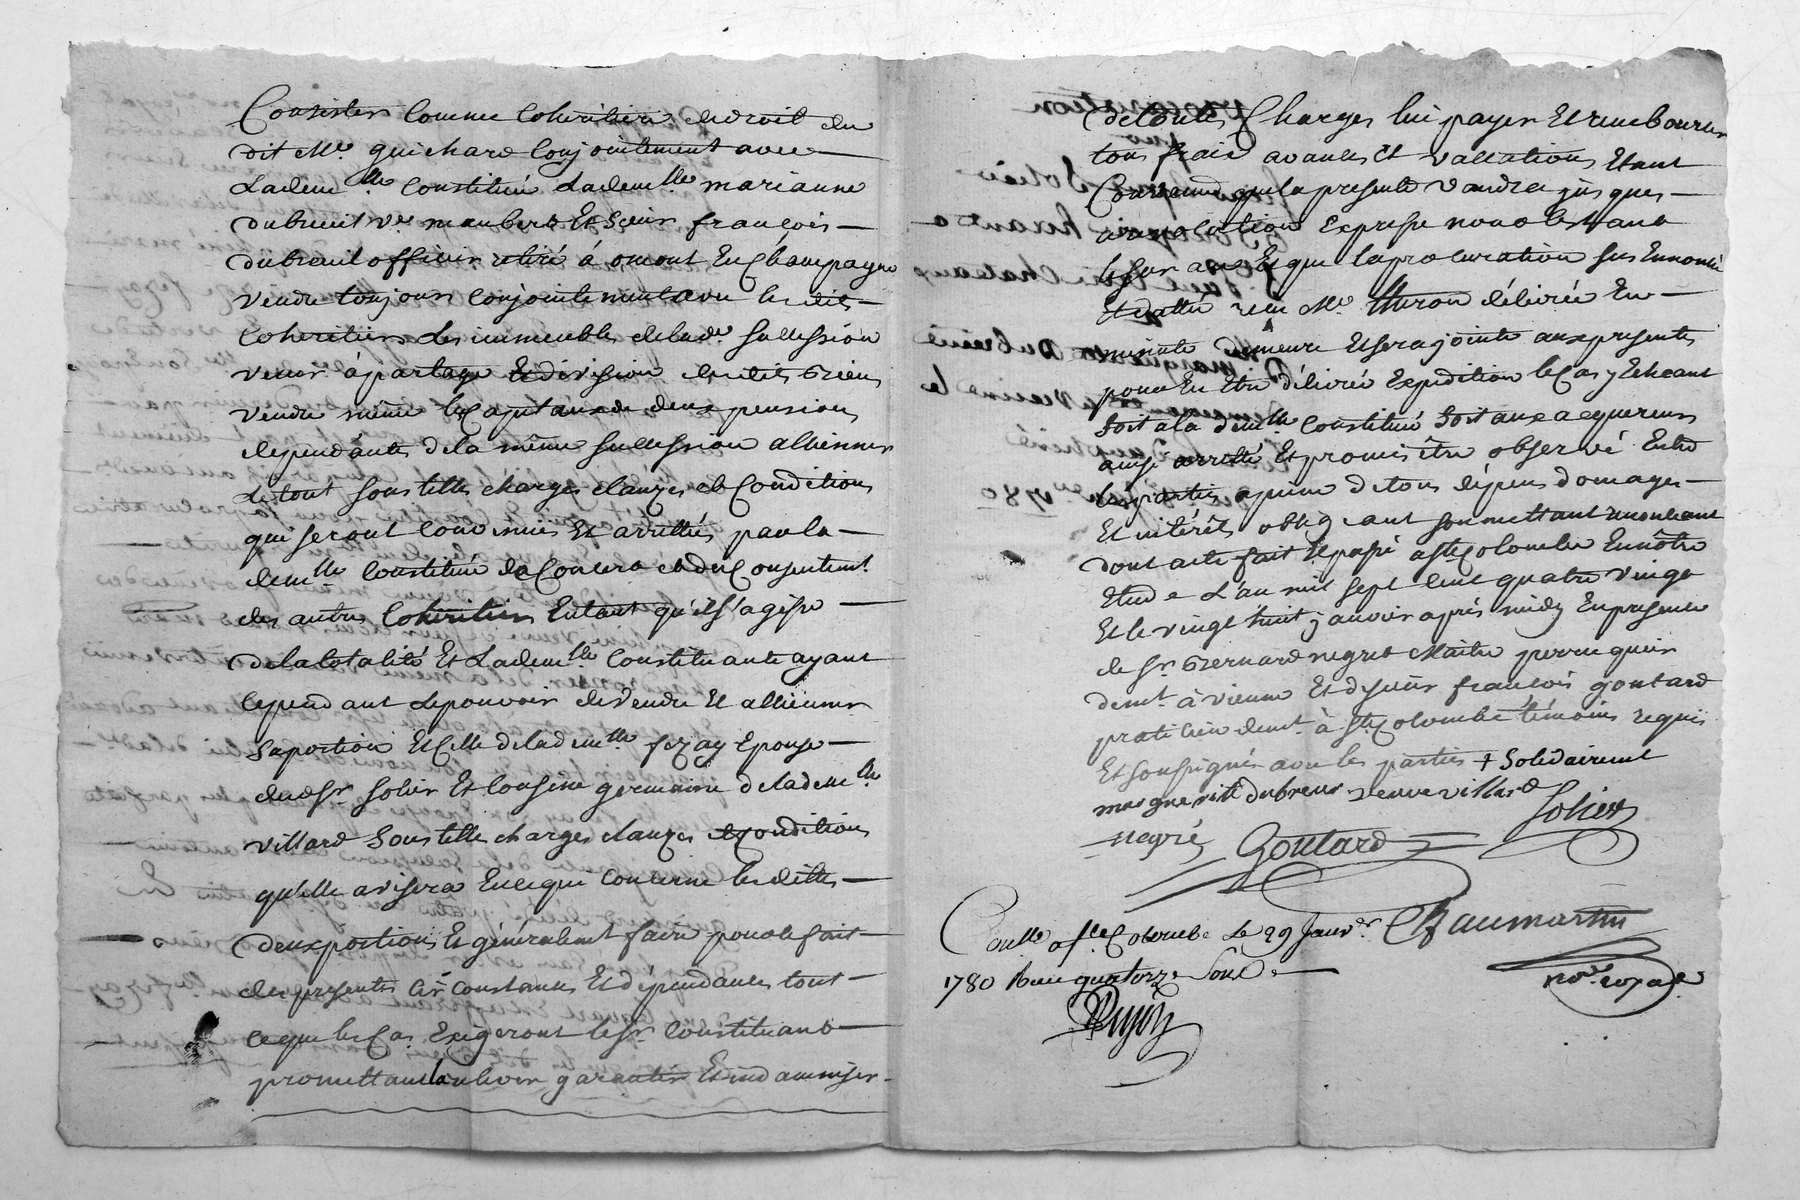 Consister Comme Coheritiere de droit du
dit Me. guichard Conjointement avec
Lademlle. Constitué Lademlle marianne
dubreuil Ve. maubert Et Sieur françois
dubreuil officier retiré á omont En Champagne
vendre toujours Conjointement avec les dits
Coheritiers Les immeubles de lade. succession
venir á partage Et division desdits Biens
vendre même les Capitaux de deux pensions
dependantes de la même succession alliener
Le tout sous telles charges clauzes et Conditions
qui seront Convenuës Et arrettés par la
demlle Constitué de Concert et du Consentemt.
des autres Coheritiers Entant qu'il s'agisse
de la totalité Et Lademlle. Constituante ayant
Cependant Le pouvoir de vendre Et alliener
Saportion Et Celle de la demlle. fezay Epouse
dudsr. solier Et Cousine germaine de lademlle
villard Sous telles charges clauzes et Conditions
qu'elle avisera En ce qui Concerne les dittes
deux portions Et généralemt faire pour le fait
des presentes CirConstances Et dépendances tout
ce que les Cas Exigeront le Sr. Constituant
promettant relever garantir Et indamniser
de toutes Charges lui payer Et rembourser
tous frais avances Et vaccations Etant
Convenu que la presente vaudra jusques
a revocation Expresse nonobstant
le sur an Et que la procuration sus Ennoncée
Et dattée reçu Me. Thiron délivrée En
minute demeure Et sera jointe aux presentes
pour En Etre délivrée Expedition le Cas y Echeant
soit a la demlle Constitué soit aux acquereurs
ainsi arretté Et promis être observé Entre
les parties a peine de tous dépens domages
Et intérêts obligeant soumettant renonceant
dont acte fait Et passé a Ste Colombe En nôtre
Etude L'an mil sept Cent quatre vingt
Et le vingt huit janvier après midy En presence
de sr. Bernard negret Maitre perruquier
demt. à vienne Et de sieur francois goutard
praticien demt. à Ste Colombe témoins requis
Et soussignés avec les parties + Solidairement
marguerite dubreul veuve villard Solier
negré Goutard
Conlle a Ste Colombe Le 29 Janvr. Chaumartin
1780 Reçu quatorze Sous
nore. royal